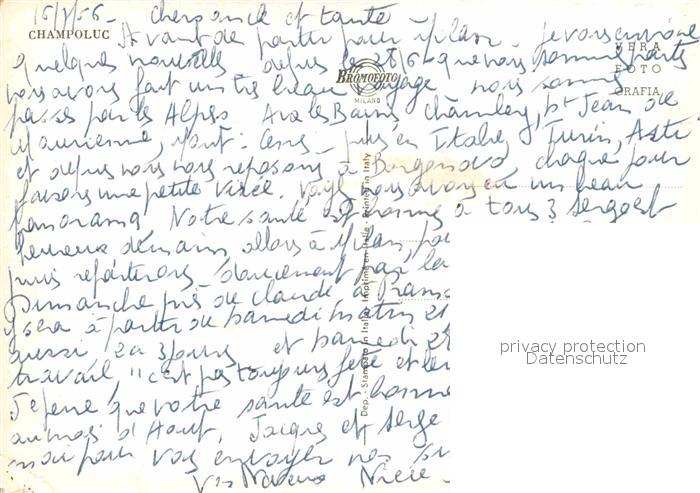 16/7/56 - cher oncle et tante
CHAMPOLUC
Avant de partir pour Milan - je vous envoie
VERA
FOTO
GRAFIA
quelques nouvelles depuis le 28/6 que nous sommes partis
nous avons fait un très beau voyage nous sommes
BROMOFOTO
MILANO
passés par les Alpes Aix les Bains Chambéry, St Jean de
Maurienne, Mont-Cenis - puis en Italie, Turin, Asti
et depuis nous nous reposons à chaque jour
faisons une petite virée. nous avons eu un beau
panorama Notre santé est bonne à tous 3 Serge est
heureux demain allons à Milan,
puis repartirons doucement par la
Dimanche près de Claude à
y sera à partir de samedi matin 21
aussi 2 à 3 jours et samedi 28
travail "c'est pas toujours fête et
J'espère que votre santé est bonne
au mois d'Août, Jacques et Serge
moi pour vous envoyer nos
Vos Neveu Nièce
Dep. - Stampato in Italia - Imprimé en Italie - Printed in Italy
privacy protection
Datenschutz